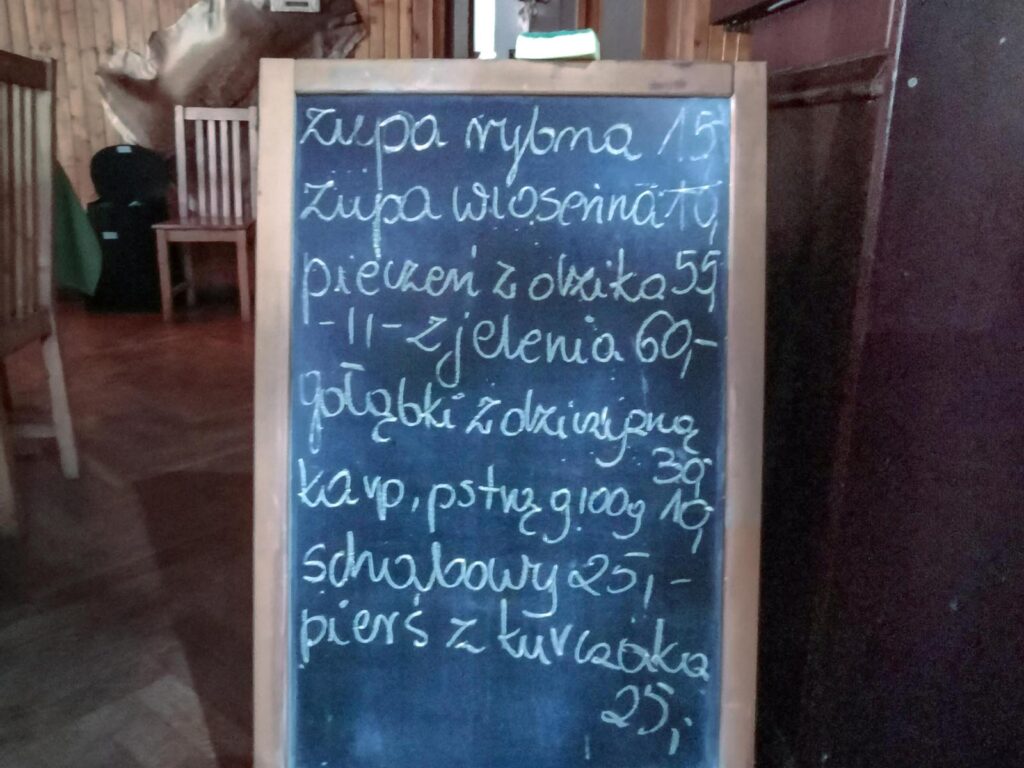 zupa rybna 15
zupa wiosenna 10,
pieczeń z dzika 55,
-II- z jelenia 60,-
gołąbki z dziczyzną
30,
karp, pstrąg 100g 10,
schabowy 25,-
pierś z kurczaka
25,-